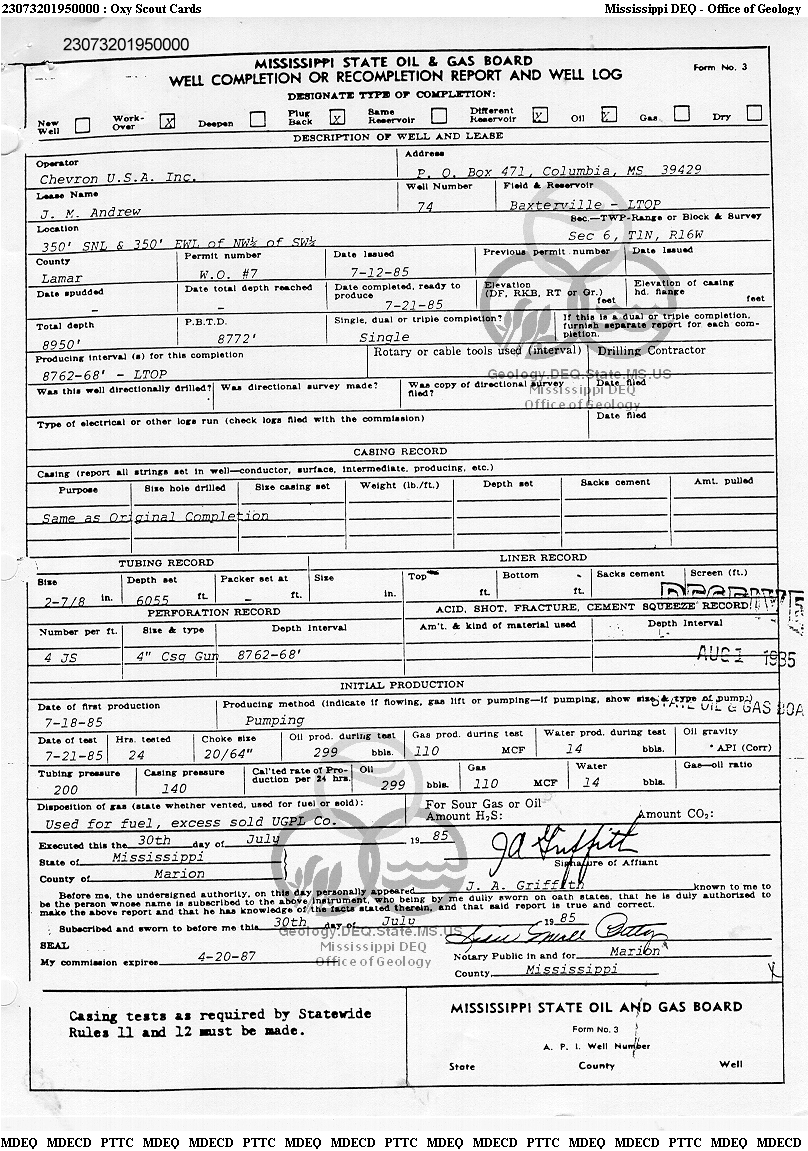 23073201950000 : Oxy Scout Cards Mississippi DEQ - Office of Geology
23073201950000
MISSISSIPPI STATE OIL & GAS BOARD
WELL COMPLETION OR RECOMPLETION REPORT AND WELL LOG
Form No. 3
DESIGNATE TYPE OF COMPLETION:
New Well Work-Over X Deepen Plug Back X Same Reservoir Different Reservoir X Oil X Gas Dry
DESCRIPTION OF WELL AND LEASE
Operator Address
Chevron U.S.A. Inc. P. O. Box 471, Columbia, MS 39429
Lease Name Well Number Field & Reservoir
J. M. Andrew 74 Baxterville - LTOP
Location Sec.—TWP-Range or Block & Survey
350' SNL & 350' EWL of NW¼ of SW¼ Sec 6, T1N, R16W
County Permit number Date Issued Previous permit number Date Issued
Lamar W.O. #7 7-12-85
Date spudded Date total depth reached Date completed, ready to produce Elevation (DF, RKB, RT or Gr.) feet Elevation of casing hd. flange feet
- - 7-21-85
Total depth P.B.T.D. Single, dual or triple completion? If this is a dual or triple completion, furnish separate report for each completion.
8950' 8772' Single
Producing interval (s) for this completion Rotary or cable tools used (interval) Drilling Contractor
8762-68' - LTOP
Geology.DEQ.State.MS.US
Mississippi DEQ
Office of Geology
Was this well directionally drilled? Was directional survey made? Was copy of directional survey filed? Date filed
Type of electrical or other logs run (check logs filed with the commission) Date filed
CASING RECORD
Casing (report all strings set in well—conductor, surface, intermediate, producing, etc.)
Purpose Size hole drilled Size casing set Weight (lb./ft.) Depth set Sacks cement Amt. pulled
Same as Original Completion
TUBING RECORD LINER RECORD
Size Depth set Packer set at Size Top Bottom Sacks cement Screen (ft.)
2-7/8 in. 6055 ft. - ft. in. ft. ft.
PERFORATION RECORD ACID, SHOT, FRACTURE, CEMENT SQUEEZE RECORD
Number per ft. Size & type Depth Interval Am't. & kind of material used Depth Interval
4 JS 4" Csg Gun 8762-68'
AUG 1 1985
INITIAL PRODUCTION
Date of first production Producing method (indicate if flowing, gas lift or pumping—if pumping, show size & type of pump:)
7-18-85 Pumping
STATE OIL & GAS BOA
Date of test Hrs. tested Choke size Oil prod. during test Gas prod. during test Water prod. during test Oil gravity
7-21-85 24 20/64" 299 bbls. 110 MCF 14 bbls. ° API (Corr)
Tubing pressure Casing pressure Cal'ted rate of Production per 24 hrs. Oil Gas Water Gas—oil ratio
200 140 299 bbls. 110 MCF 14 bbls.
Disposition of gas (state whether vented, used for fuel or sold): For Sour Gas or Oil
Amount H₂S: Amount CO₂:
Used for fuel, excess sold UGPL Co.
Executed this the 30th day of July 19 85
JA Griffith
State of Mississippi Signature of Affiant
County of Marion
Before me, the undersigned authority, on this day personally appeared J. A. Griffith known to me to
be the person whose name is subscribed to the above instrument, who being by me dully sworn on oath states, that he is duly authorized to
make the above report and that he has knowledge of the facts stated therein, and that said report is true and correct.
Subscribed and sworn to before me this 30th day of July 19 85
Geology.DEQ.State.MS.US
SEAL Mississippi DEQ Notary Public in and for Marion
My commission expires 4-20-87 Office of Geology
County Mississippi
Casing tests as required by Statewide
Rules 11 and 12 must be made.
MISSISSIPPI STATE OIL AND GAS BOARD
Form No. 3
A. P. I. Well Number
State County Well
MDEQ MDECD PTTC MDEQ MDECD PTTC MDEQ MDECD PTTC MDEQ MDECD PTTC MDEQ MDECD PTTC MDEQ MDECD